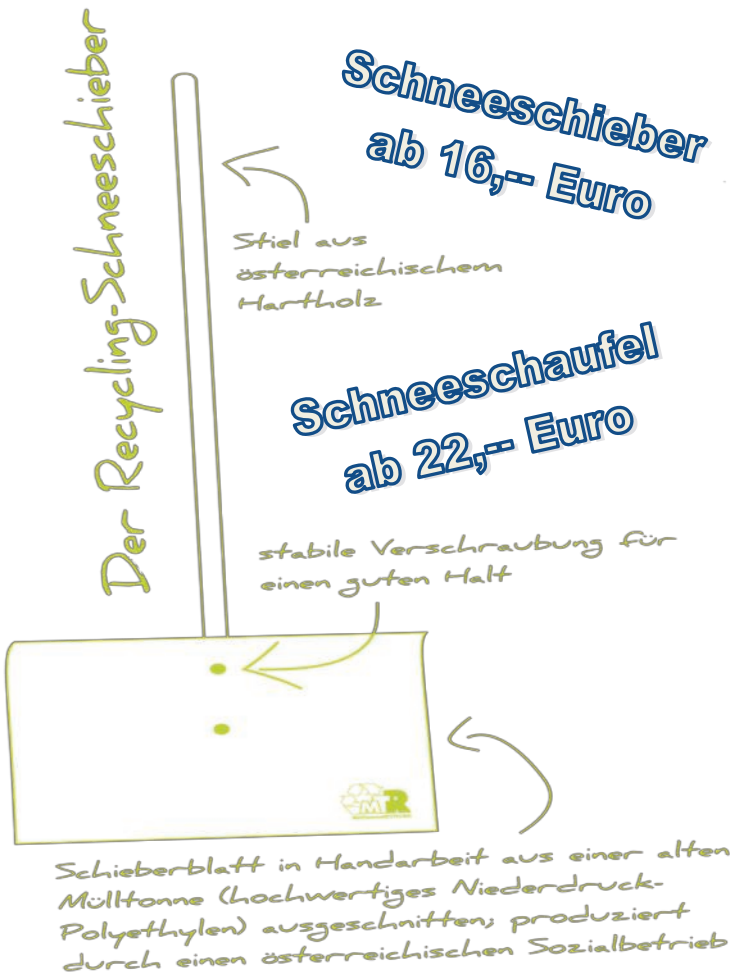 Der Recycling-Schneeschieber
Schneeschieber
ab 16,-- Euro
Stiel aus
österreichischem
Hartholz
Schneeschaufel
ab 22,-- Euro
stabile Verschraubung für
einen guten Halt
MTR
Schieberblatt in Handarbeit aus einer alten
Mülltonne (hochwertiges Niederdruck-
Polyethylen) ausgeschnitten; produziert
durch einen österreichischen Sozialbetrieb